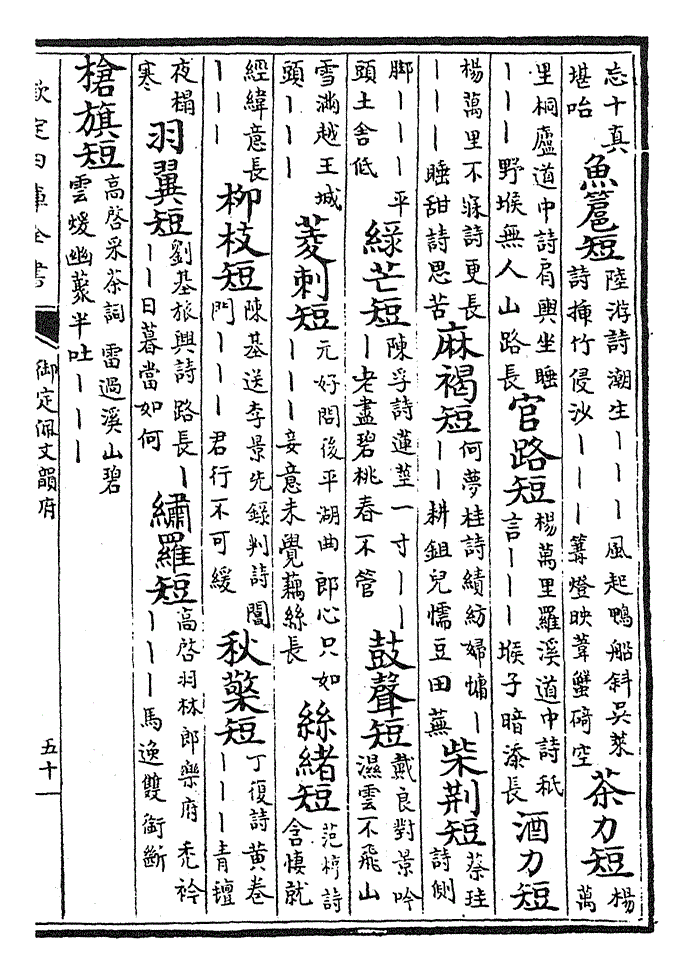 忘十真
堪咍
魚簄短
陸游詩潮生丨丨丨風起鴨船斜吳萊
詩揷竹侵沙丨丨丨篝燈映葦蟹碕空
茶力短
楊
萬
里桐廬道中詩肩輿坐睡
丨丨丨野堠無人山路長
官路短
楊萬里羅溪道中詩秖
言丨丨丨堠子暗添長
酒力短
楊萬里不寐詩更長
丨丨丨睡甜詩思苦
麻褐短
何夢桂詩績紡婦慵丨
丨丨耕鉏兒懦豆田蕪
柴荆短
蔡珪
詩側
脚丨丨丨平
頭土舍低
綠芒短
陳孚詩蓮莖一寸丨丨
丨老盡碧桃春不管
鼓聲短
戴良對景吟
濕雲不飛山
雪滿越王城
頭丨丨丨
菱刺短
元好問後平湖曲郎心只如
丨丨丨妾意未覺藕絲長
絲緒短
范梈詩
含悽就
經緯意長
丨丨丨
柳枝短
陳基送李景先錄判詩閶
門丨丨丨君行不可緩
秋檠短
丁復詩黄卷
丨丨丨青氊
夜榻
寒
羽翼短
劉基旅興詩路長丨
丨丨日暮當如何
繡羅短
高啓羽林郎樂府秃衿
丨丨丨馬逸雙銜斷
槍旗短
高啓采茶詞雷過溪山碧
雲煖幽叢半吐丨丨丨
欽定四庫全書
御定佩文韻府
五十一